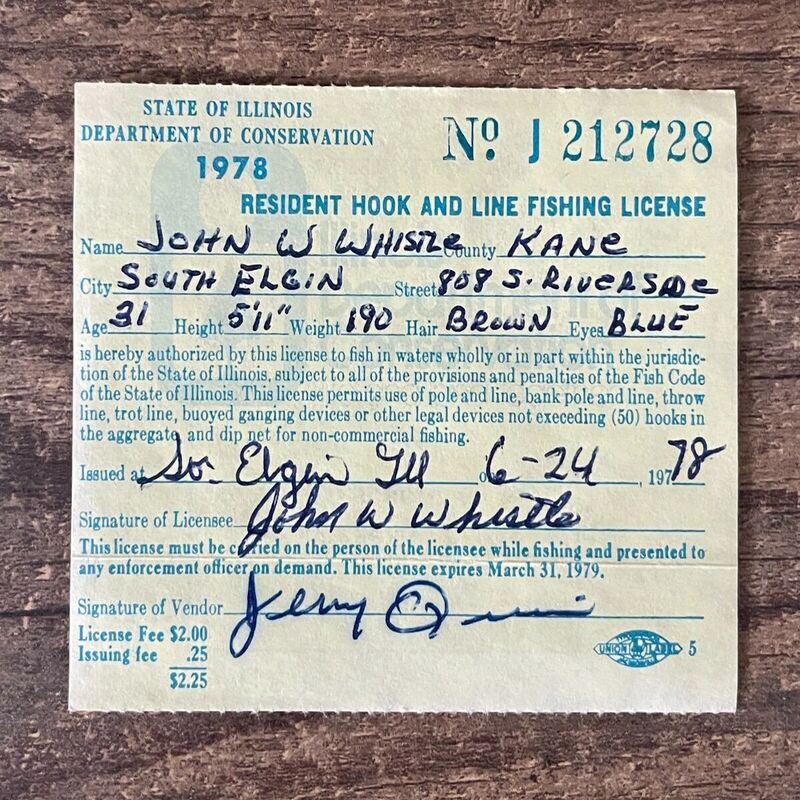 STATE OF ILLINOIS
DEPARTMENT OF CONSERVATION
1978
Nº J 212728
RESIDENT HOOK AND LINE FISHING LICENSE
Name JOHN W WHISTLE County KANE
City SOUTH ELGIN Street 808 S. RIVERSIDE
Age 31 Height 5'11" Weight 190 Hair BROWN Eyes BLUE
is hereby authorized by this license to fish in waters wholly or in part within the jurisdic-
tion of the State of Illinois, subject to all of the provisions and penalties of the Fish Code
of the State of Illinois. This license permits use of pole and line, bank pole and line, throw
line, trot line, buoyed ganging devices or other legal devices not exceeding (50) hooks in
the aggregate and dip net for non-commercial fishing.
Issued at So. Elgin Ill 6-24, 1978
Signature of Licensee John W Whistle
This license must be carried on the person of the licensee while fishing and presented to
any enforcement officer on demand. This license expires March 31, 1979.
Signature of Vendor Jerry
License Fee $2.00
Issuing fee .25
$2.25
UNION LABEL 5